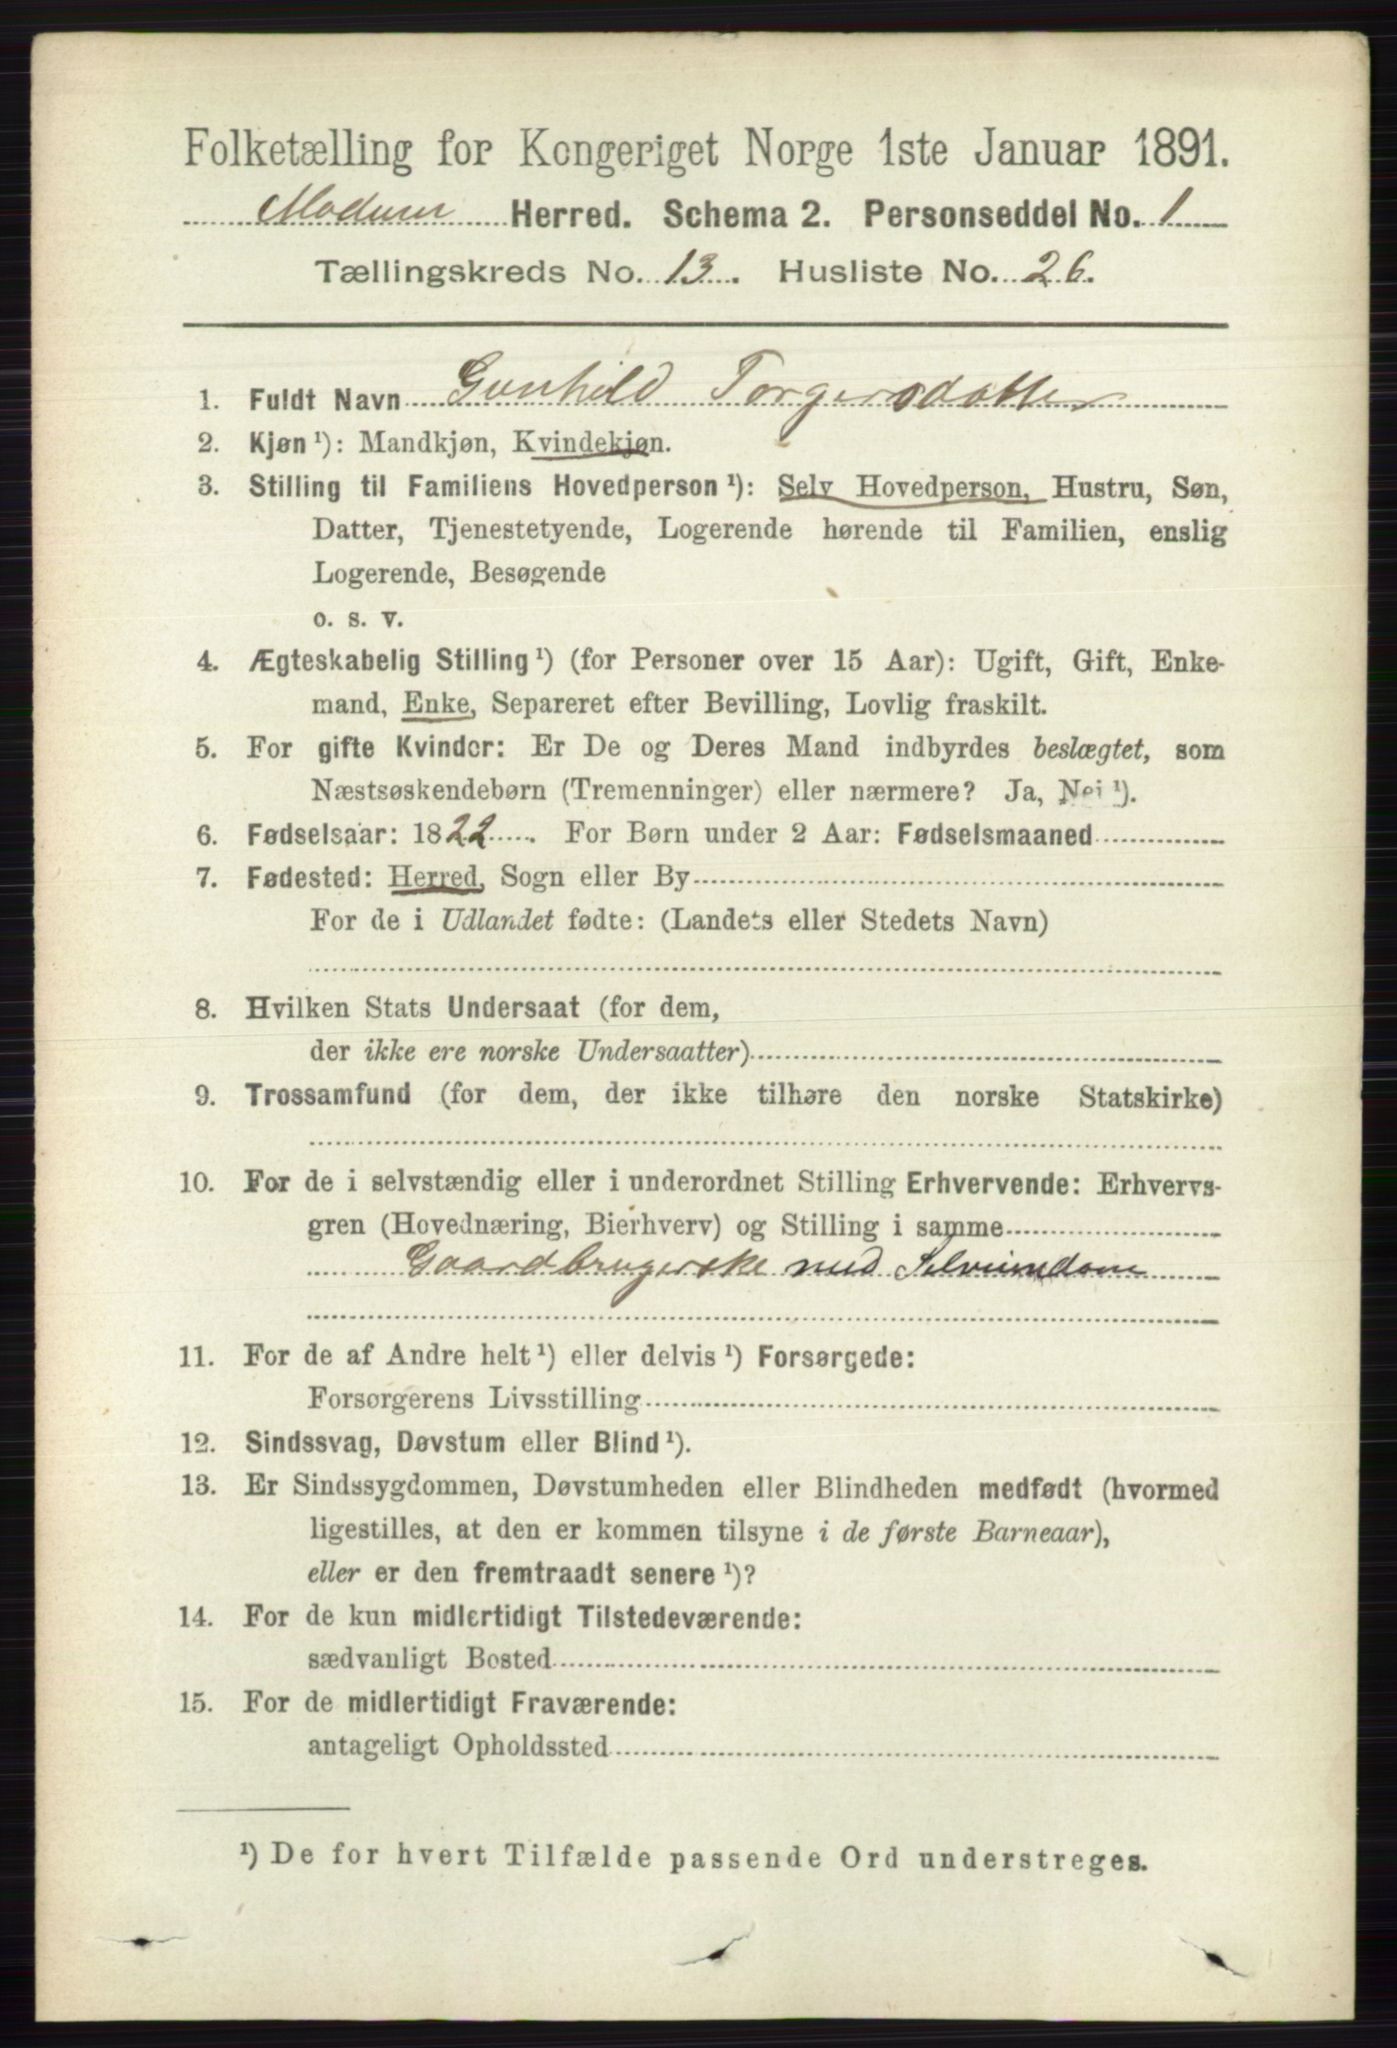 Folketælling for Kongeriget Norge 1ste Januar 1891.
Modum Herred. Schema 2. Personseddel No. 1
Tællingskreds No. 13. Husliste No. 26.
1. Fuldt Navn Gunhild Torgersdatter
2. Kjøn ¹): Mandkjøn, Kvindekjøn.
3. Stilling til Familiens Hovedperson ¹): Selv Hovedperson, Hustru, Søn,
Datter, Tjenestetyende, Logerende hørende til Familien, enslig
Logerende, Besøgende
o. s. v.
4. Ægteskabelig Stilling ¹) (for Personer over 15 Aar): Ugift, Gift, Enke-
mand, Enke, Separeret efter Bevilling, Lovlig fraskilt.
5. For gifte Kvinder: Er De og Deres Mand indbyrdes beslægtet, som
Næstsøskendebørn (Tremenninger) eller nærmere? Ja, Nei ¹).
6. Fødselsaar: 1822. For Børn under 2 Aar: Fødselsmaaned
7. Fødested: Herred, Sogn eller By
For de i Udlandet fødte: (Landets eller Stedets Navn)
8. Hvilken Stats Undersaat (for dem,
der ikke ere norske Undersaatter)
9. Trossamfund (for dem, der ikke tilhøre den norske Statskirke)
10. For de i selvstændig eller i underordnet Stilling Erhvervende: Erhvervs-
gren (Hovednæring, Bierhverv) og Stilling i samme
Gaardbrugerske med Selveiendom
11. For de af Andre helt ¹) eller delvis ¹) Forsørgede:
Forsørgerens Livsstilling
12. Sindssvag, Døvstum eller Blind ¹).
13. Er Sindssygdommen, Døvstumheden eller Blindheden medfødt (hvormed
ligestilles, at den er kommen tilsyne i de første Barneaar),
eller er den fremtraadt senere ¹)?
14. For de kun midlertidigt Tilstedeværende:
sædvanligt Bosted
15. For de midlertidigt Fraværende:
antageligt Opholdssted
¹) De for hvert Tilfælde passende Ord understreges.